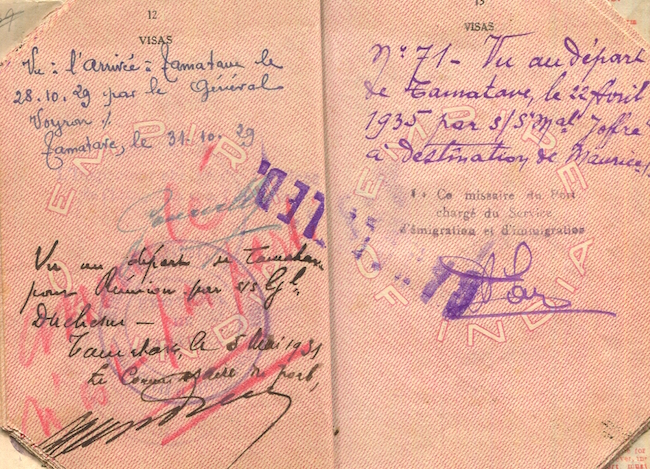 12
VISAS
Vu à l'arrivée à Tamatave le
28.10.29 par le Général
Voyron ./.
Tamatave, le 31.10.29
Vu au départ de Tamatave
pour Réunion par s/s Gl.
Duchesne —
Tamatave, le 8 Mai 1931
Le Commissaire du port,
13
VISAS
No. 71 - Vu au départ
de Tamatave, le 22 Avril
1935 par S/S Mal. Joffre
à destination de Maurice
Commissaire du Port
chargé du Service
d'émigration et d'immigration
EMPIRE
OF INDIA